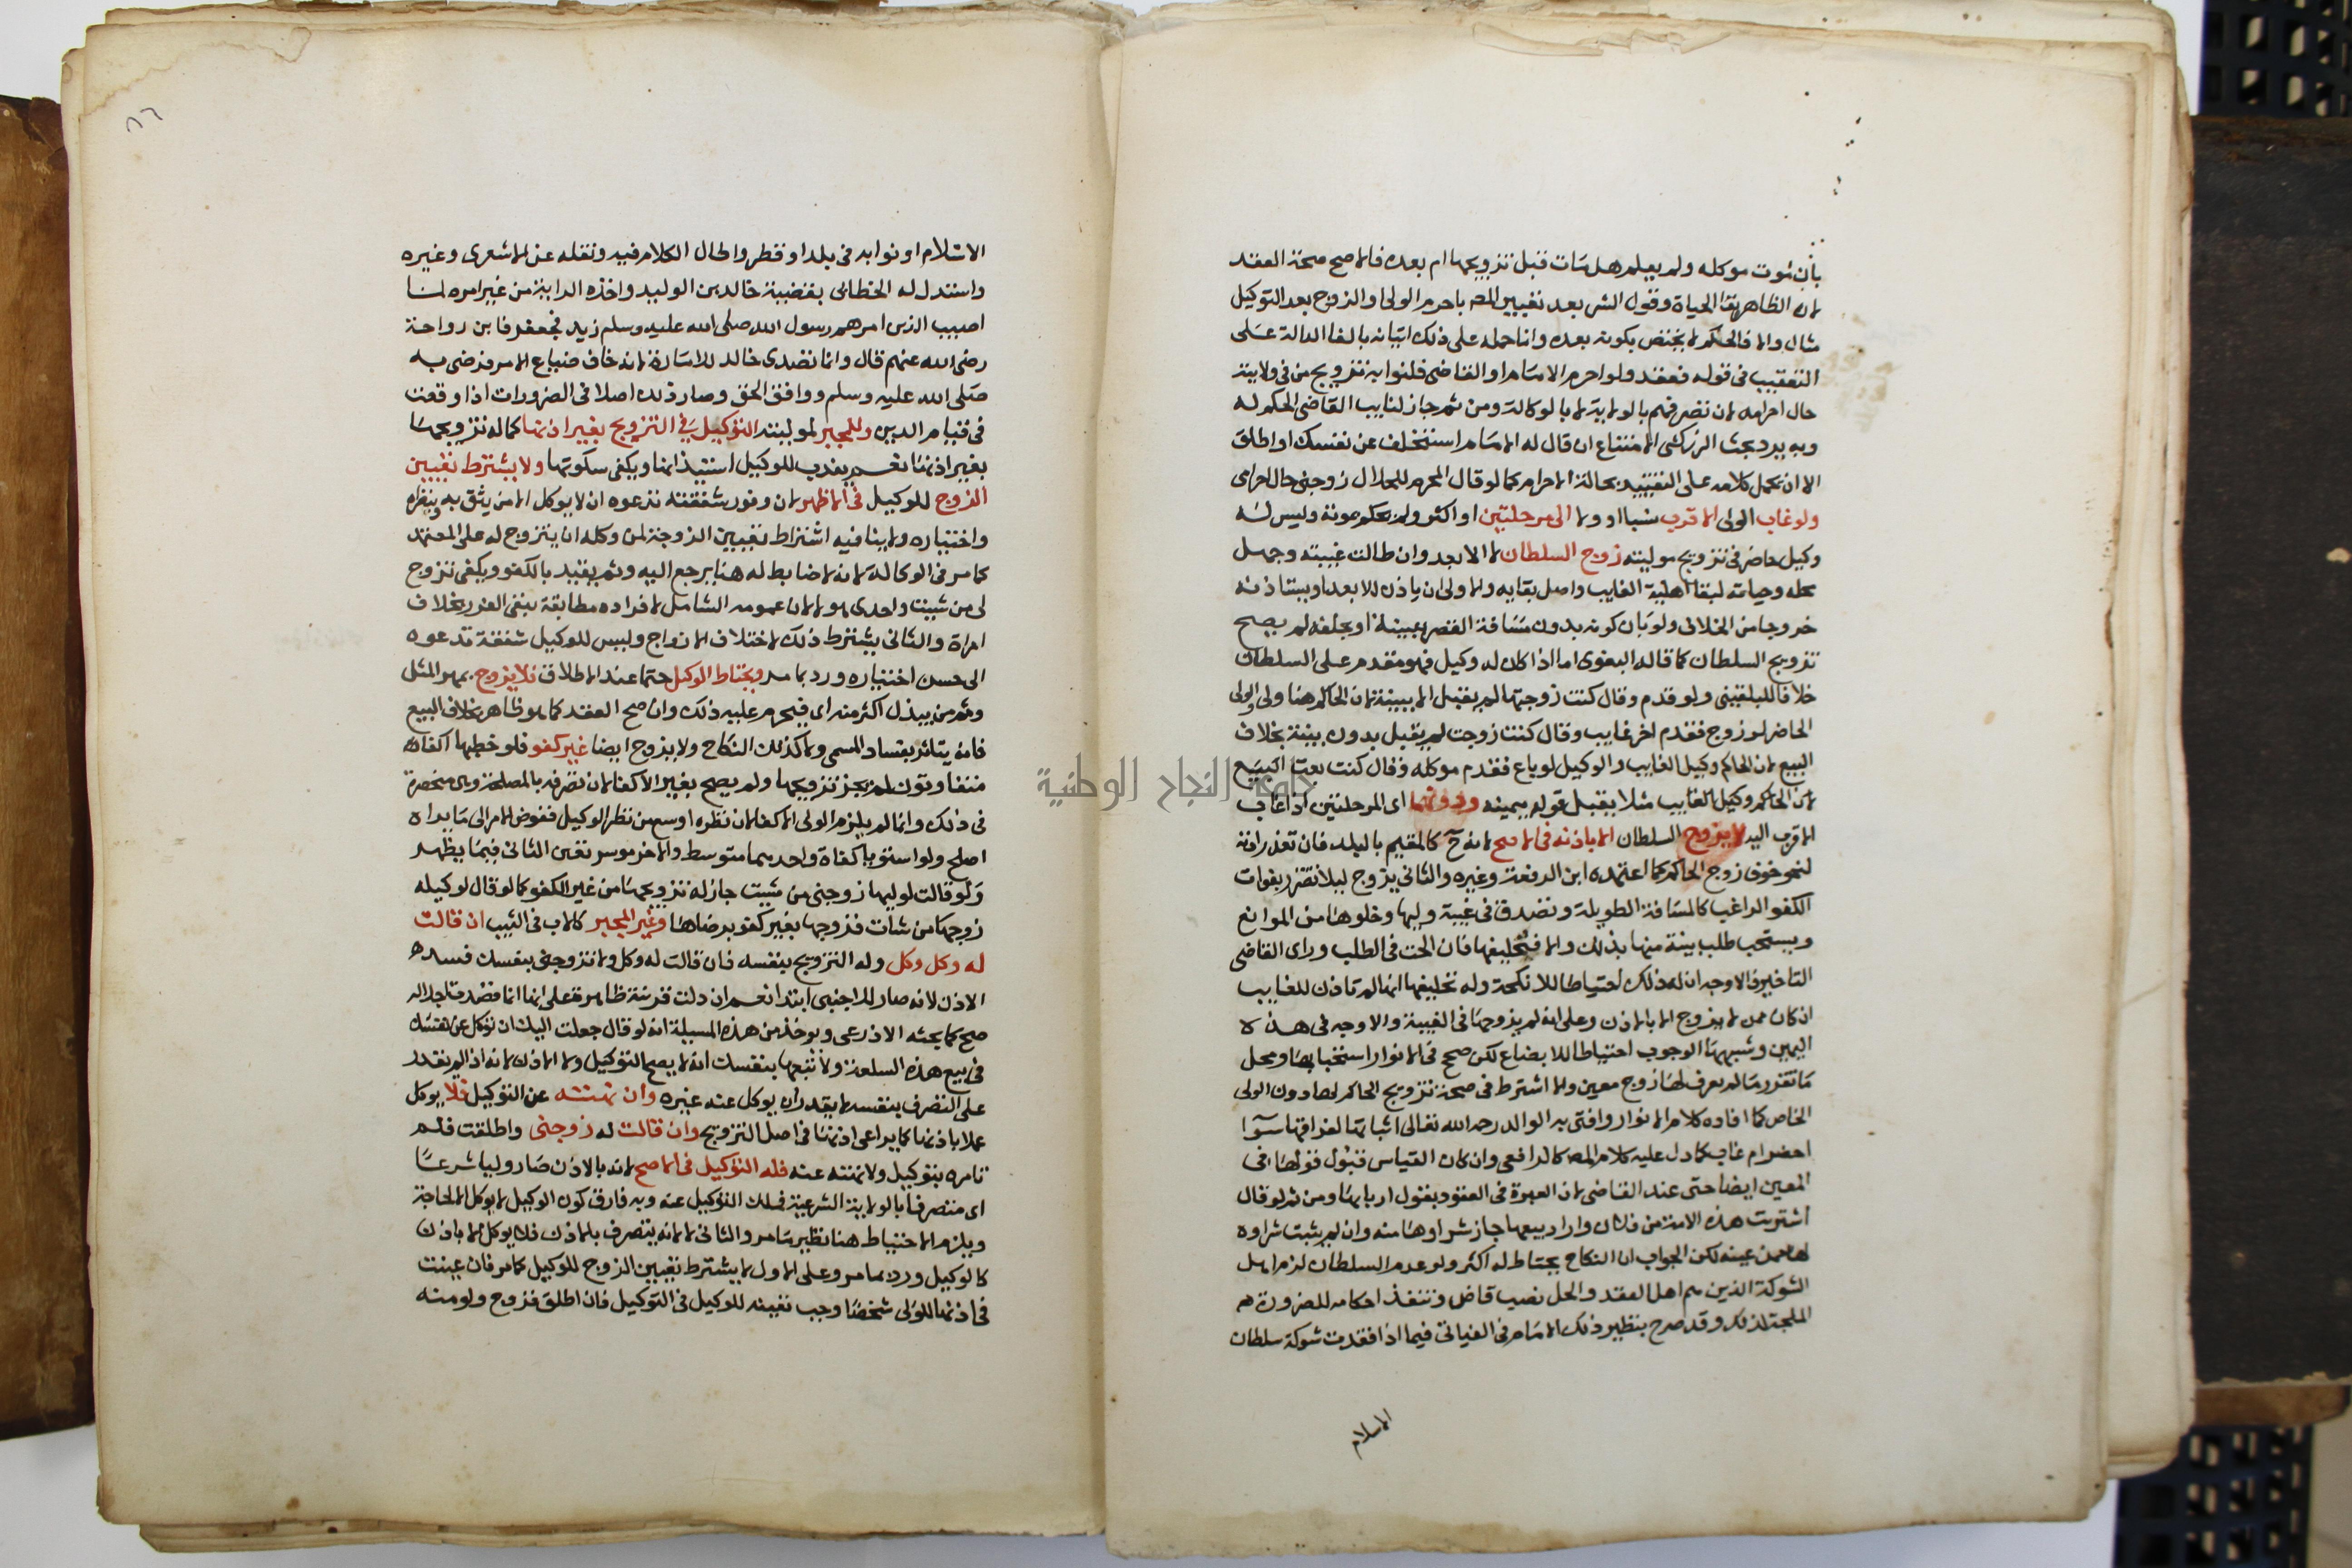 بان موت موكله ولم يعلم هل مات قبل تزويجها ام بعده فالاصح صحة العقد
لان الظاهر بقا الحياة وقول الشر بعد تعيين المص باحرام الولى والزوج بعد التوكيل
مثال والا فالحكم لا يختص بكونه بعده وانما حمله على ذلك اتيانه بالفا الدالة على
التعقيب فى قوله فعقد ولو احرم الامام او القاضى فلنوابه تزويج من فى ولايته
حال احرامه لان تصرفهم بالولاية لا بالوكالة ومن ثم جاز لنايب القاضى الحكم له
وبه يرد بحث الزركشى الامتناع ان قال له الامام استخلف عن نفسك او اطلق
الا ان يحمل كلامه على التقييد بحالة الاحرام كما لو قال المحرم للحلال زوجنى حال احرامى
ولو غاب الولى الاقرب نسبا او ولا الى مرحلتين او اكثر ولم يحكم بموته وليس له
وكيل حاضر فى تزويج موليته زوج السلطان لا الابعد وان طالت غيبته وجهل
محله وحياته لبقا اهلية الغايب واصل بقايه والاولى ان ياذن للابعد او يستاذنه
خروجا من الخلاف ولو بان كونه بدون مسافة القصر ببينة او بحلفه لم يصح
تزويج السلطان كما قاله البغوى اما اذا كان له وكيل فهو مقدم على السلطان
خلافا للبلقينى ولو قدم وقال كنت زوجتها لم يقبل الا ببينة لان الحاكم هنا ولى والولى
الحاضر لو زوج فقدم اخر غايب وقال كنت زوجت لم يقبل بدون بينة بخلاف
البيع لان الحاكم وكيل الغايب والوكيل لو باع فقدم موكله وقال كنت بعت المبيع
لان الحاكم وكيل الغايب مثلا يقبل قوله بيمينه ودونهما اى المرحلتين اذا غاب
الاقرب اليه لا يزوج السلطان الا باذنه فى الاصح لانه ح كالمقيم بالبلد فان تعذر اذنه
لنحو خوف زوج الحاكم كما اعتمده ابن الرفعة وغيره والثانى يزوج ليلا تتضرر بفوات
الكفو الراغب كالمسافة الطويلة وتصدق فى غيبة وليها وخلوها من الموانع
ويستحب طلب بينة منها بذلك والا فتحليفها فان الحت فى الطلب وراى القاضى
التاخير فالاوجه ان له ذلك احتياطا للانكحة وله تحليفها انها لم تاذن للغايب
ان كان ممن لا يزوج الا بالاذن وعلى انه لم يزوجها فى الغيبة والاوجه فى هذه لا
اليمين وشبهها الوجوب احتياطا للابضاع لكن صحح فى الانوار استحبابها ومحل
ما تقرر ما لم يعرف لها زوج معين والا اشترط فى صحة تزويج الحاكم لها دون الولى
الخاص كما افاده كلام الانوار وافتى به الوالد رحمه الله تعالى اثباتها لفراقها سوآ
احضر ام غاب كما دل عليه كلام المص كالرافعى وان كان القياس قبول قولها فى
المعين ايضا حتى عند القاضى لان العبرة فى العقود بقول اربابها ومن ثم لو قال
اشتريت هذه الامة من فلان واراد بيعها جاز شراوها منه وان لم يثبت شراوه
لها ممن عينه لكن الجواب ان النكاح يحتاط له اكثر ولو عدم السلطان لزم اهل
الشوكة الذين هم اهل العقد والحل نصب قاض وتنفذ احكامه للضرورة
الملجية لذلك وقد صرح بنظير ذلك الامام فى الغياثى فيما اذا فقدت شوكة سلطان
الاسلام
٨٦
الاسلام او نوابه فى بلد او قطر واطال الكلام فيه ونقله عن الاشعرى وغيره
واستدل له الخطابى بقضية خالد بن الوليد واخذه الراية من غير امره لما
اصيب الذين امرهم رسول الله صلى الله عليه وسلم زيد فجعفر فابن رواحة
رضى الله عنهم قال وانما تصدى خالد للامارة لانه خاف ضياع الامر فرضى به
صلى الله عليه وسلم ووافق الحق وصار ذلك اصلا فى الضرورات اذا وقعت
فى قيام الدين وللمجبر لموليته التوكيل فى التزويج بغير اذنها كما له تزويجها
بغير اذنها نعم يندب للوكيل استيذانها ويكفى سكوتها ولا يشترط تعيين
الزوج للوكيل فى الاظهر لان وفور شفقته تدعوه ان لا يوكل الا من يثق به وبنظره
واختياره ولا ينافيه اشتراط تعيين الزوجة لمن وكله ان يتزوج له على المعتمد
كما مر فى الوكالة لانه لا ضابط له هنا يرجع اليه وثم يقيد بالكفو ويكفى تزوج
لى من شيت واحدى هولا لان عمومه الشامل لافراده مطابقة ينفى الغرر بخلاف
امراة والثانى يشترط ذلك لاختلاف الازواج وليس للوكيل شفقة تدعوه
الى حسن اختياره ورد بما مر ويحتاط الوكيل حتما عند الاطلاق فلا يزوج بمهر المثل
وثم من يبذل اكثر منه اى فيحرم عليه ذلك وان صح العقد كما هو ظاهر بخلاف البيع
فانه يتاثر بفساد المسمى ولا كذلك النكاح ولا يزوج ايضا غير كفو فلو خطبها اكفاء
متفاوتون لم يجز تزويجها ولم يصح بغير الاكفا لان تصرفه بالمصلحة وهى منحصرة
فى ذلك وانما لم يلزم الولى الاكفا لان نظره اوسع من نظر الوكيل ففوض الامر الى ما يراه
اصلح ولو استويا كفاة واحدهما متوسط والاخر موسر تعين الثانى فيما يظهر
ولو قالت لوليها زوجنى من شيت جاز له تزويجها من غير الكفو كما لو قال لوكيله
زوجها من شات فزوجها بغير كفو برضاها وغير المجبر كالاب فى الثيب ان قالت
له وكل وكل وله التزويج بنفسه فان قالت له وكل ولا تزوجنى بنفسك فسد
الاذن لانه صار للاجنبى ابتدا نعم ان دلت قرينة ظاهرة على انها انما قصدت اجلاله
صح كما بحثه الاذرعى ويوخذ من هذه المسيلة انه لو قال جعلت اليك ان توكل عن نفسك
فى بيع هذه السلعة ولا تبعها بنفسك انه لا يصح التوكيل ولا الاذن لانه اذا لم يقدر
على التصرف بنفسه لا يقدر ان يوكل عنه غيره وان نهته عن التوكيل فلا يوكل
عملا باذنها كما يراعى اذنها فى اصل التزويج وان قالت له زوجنى واطلقت فلم
تامره بتوكيل ولا نهته عنه فله التوكيل فى الاصح لانه بالاذن صار وليا شرعا
اى متصرفا بالولاية الشرعية فملك التوكيل عنه وبه فارق كون الوكيل لا يوكل الا لحاجة
ويلزمه الاحتياط هنا نظير ما مر والثانى لا لانه يتصرف بالاذن فلا يوكل الا باذن
كالوكيل ورد بما مر وعلى الاول لا يشترط تعيين الزوج للوكيل كما مر فان عينت
فى اذنها للولى شخصا وجب تعيينه للوكيل فى التوكيل فان اطلق فزوج ولو منه
جامعة النجاح الوطنية